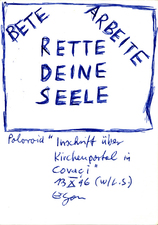 BETE ARBEITE
RETTE
DEINE
SEELE
Poloroid "Inschrift über
Kirchenportal in
Covaci"
13 X '16 (w/L.S)